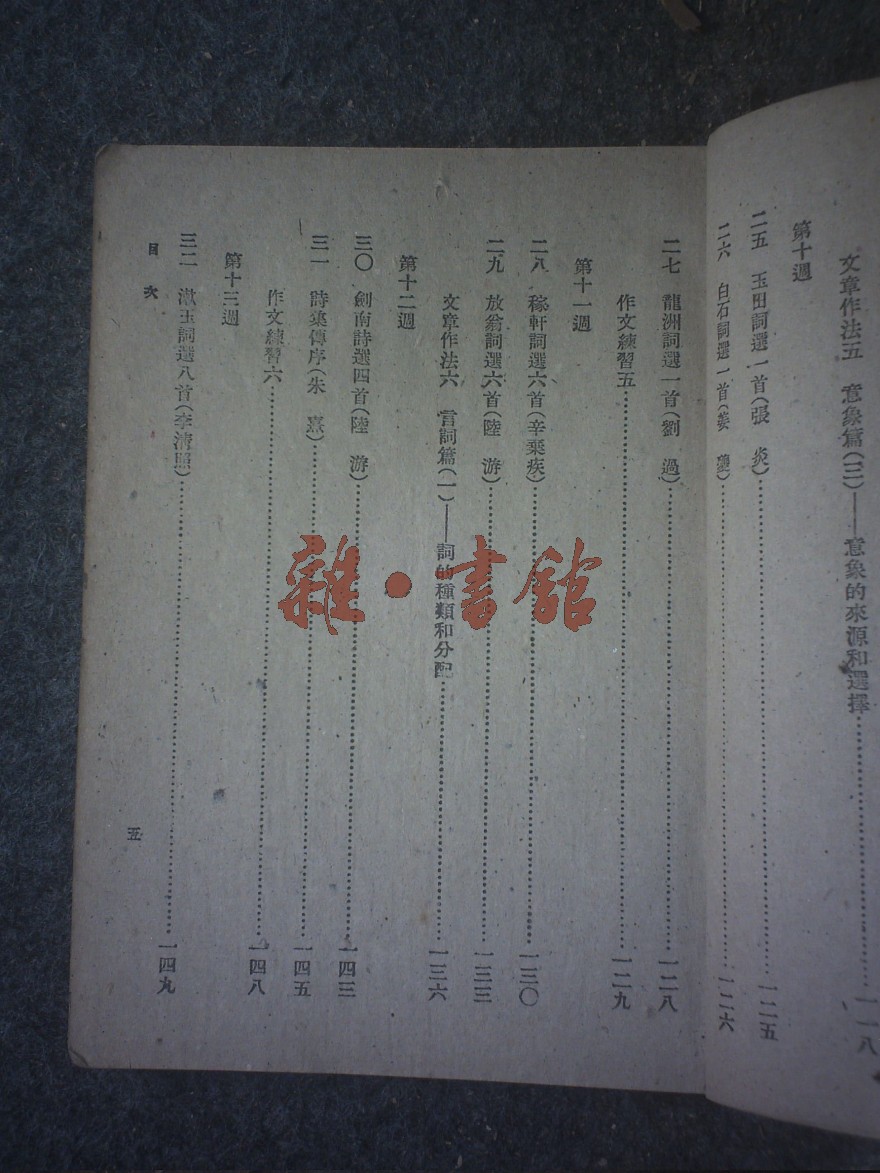 文章作法五　意象篇(三)——意象的來源和選擇……一一八
第十週
二五　玉田詞選一首(張　炎)……一二五
二六　白石詞選一首(姜　夔)……一二六
二七　龍洲詞選一首(劉　過)……一二八
作文練習五……一二九
第十一週
二八　稼軒詞選六首(辛棄疾)……一三〇
二九　放翁詞選六首(陸　游)……一三三
文章作法六　言詞篇(一)——詞的種類和分配……一三六
第十二週
三〇　劍南詩選四首(陸　游)……一四三
三一　詩集傳序(朱　熹)……一四五
作文練習六……一四八
第十三週
三二　漱玉詞選八首(李清照)……一四九
目　次
五
雜·書館